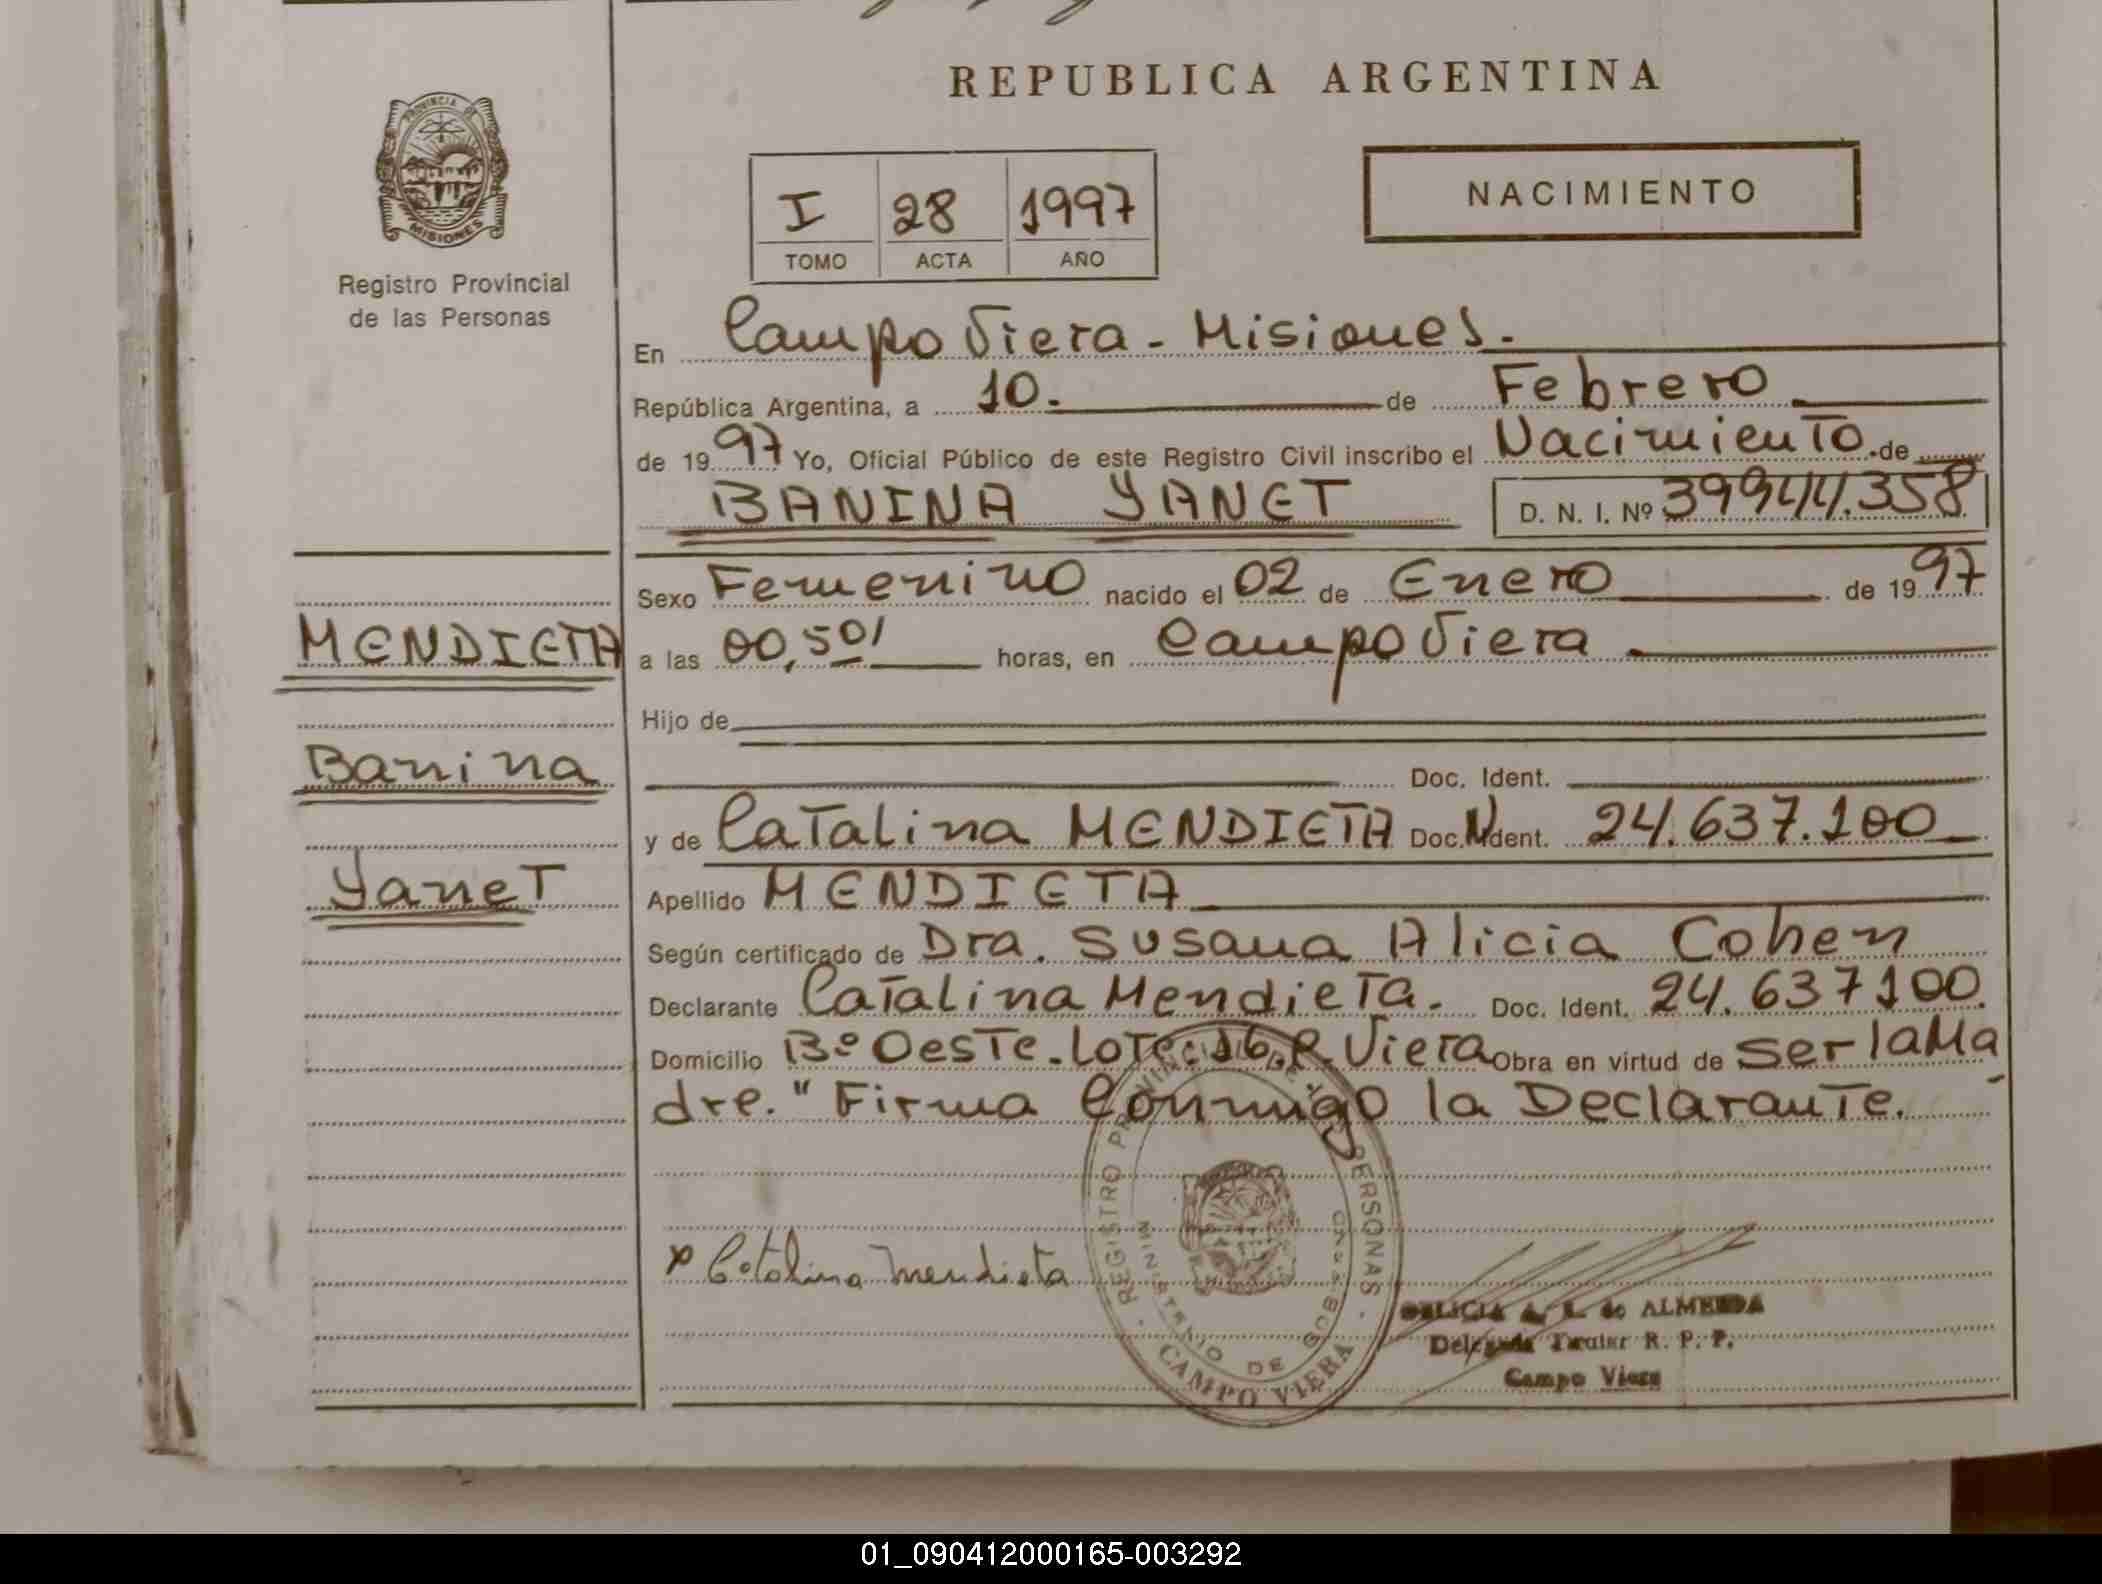 REPUBLICA ARGENTINA
PROVINCIA DE
MISIONES
Registro Provincial
de las Personas
NACIMIENTO
I 28 1997
TOMO ACTA AÑO
En Campo Viera - Misiones.
República Argentina, a 10. de Febrero
de 1997 Yo, Oficial Público de este Registro Civil inscribo el Nacimiento de
BANINA YANET D. N. I. Nº 39944.358
Sexo Femenino nacido el 02 de Enero de 1997
MENDIETA
a las 00,50' horas, en Campo Viera
Hijo de
Banina
Doc. Ident.
y de Catalina MENDIETA Doc. Ident. 24.637.100
Yanet
Apellido MENDIETA
Según certificado de Dra. Susana Alicia Cohen
Declarante Catalina Mendieta. Doc. Ident. 24.637100
Domicilio Bº Oeste. Lote. 16. C. Viera Obra en virtud de ser la Ma
dre. " Firma Conmigo la Declarante.
x Catalina Mendieta
REGISTRO PROVINCIAL DE LAS PERSONAS
MINISTERIO DE GOBIERNO
CAMPO VIERA
DELICIA A. R. de ALMEIDA
Delegada Titular R. P. P.
Campo Viera
01_090412000165-003292